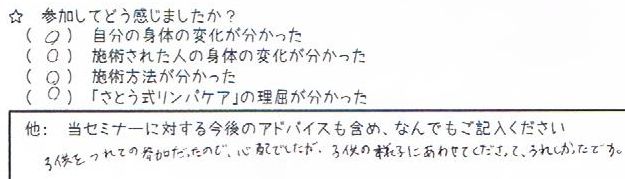 ☆ 参加してどう感じましたか？
( ○ ) 自分の身体の変化が分かった
( ○ ) 施術された人の身体の変化が分かった
( ○ ) 施術方法が分かった
( ○ ) 「さとう式リンパケア」の理屈が分かった
他: 当セミナーに対する今後のアドバイスも含め、なんでもご記入ください
子供をつれての参加だったので、心配でしたが、子供の様子にあわせてくださって、うれしかったです。